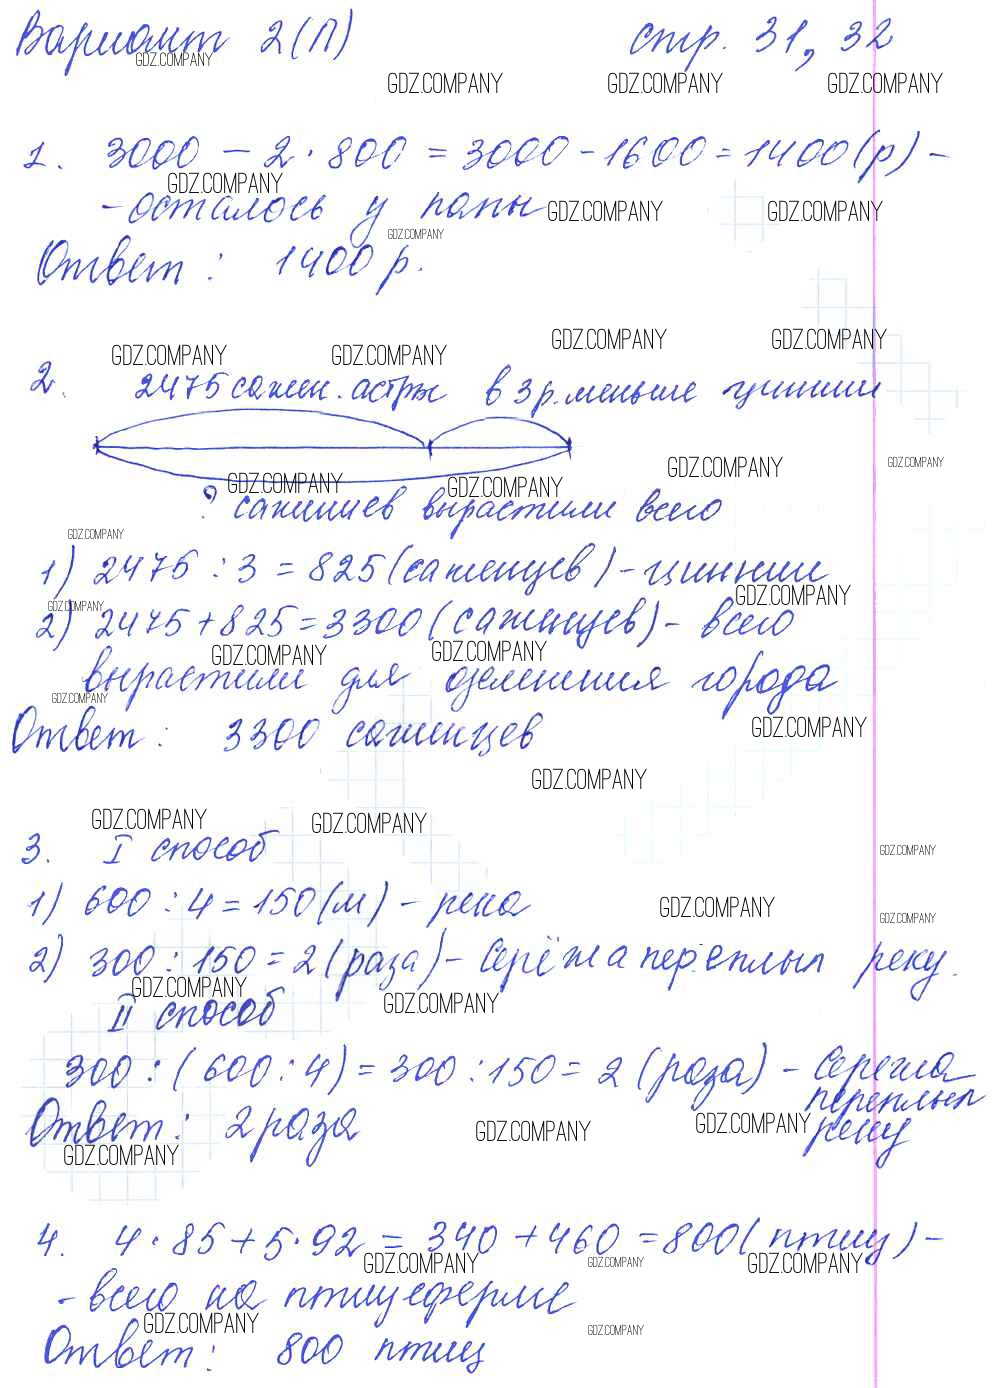 Вариант 2(П) стр. 31, 32
GDZ.COMPANY
GDZ.COMPANY GDZ.COMPANY GDZ.COMPANY
1. 3000 - 2·800 = 3000 - 1600 = 1400 (р) -
GDZ.COMPANY
- осталось у папы
GDZ.COMPANY GDZ.COMPANY
GDZ.COMPANY
Ответ: 1400 р.
GDZ.COMPANY GDZ.COMPANY
GDZ.COMPANY GDZ.COMPANY
2. 2475 сажен. астры в 3 р. меньше циннии
GDZ.COMPANY GDZ.COMPANY
GDZ.COMPANY GDZ.COMPANY
? саженцев вырастили всего
GDZ.COMPANY
1) 2475 : 3 = 825 (саженцев) - циннии
GDZ.COMPANY
GDZ.COMPANY
2) 2475 + 825 = 3300 (саженцев) - всего
GDZ.COMPANY GDZ.COMPANY
вырастили для озеленения города
GDZ.COMPANY
GDZ.COMPANY
Ответ: 3300 саженцев
GDZ.COMPANY
GDZ.COMPANY GDZ.COMPANY
3. I способ
GDZ.COMPANY
1) 600 : 4 = 150 (м) - река
GDZ.COMPANY
GDZ.COMPANY
2) 300 : 150 = 2 (раза) - Серёжа переплыл реку.
GDZ.COMPANY GDZ.COMPANY
II способ
300 : (600 : 4) = 300 : 150 = 2 (раза) - Сережа
переплыл
реку
Ответ: 2 раза
GDZ.COMPANY GDZ.COMPANY
GDZ.COMPANY
4. 4·85 + 5·92 = 340 + 460 = 800 (птиц) -
GDZ.COMPANY GDZ.COMPANY GDZ.COMPANY
- всего на птицеферме
GDZ.COMPANY GDZ.COMPANY
Ответ: 800 птиц